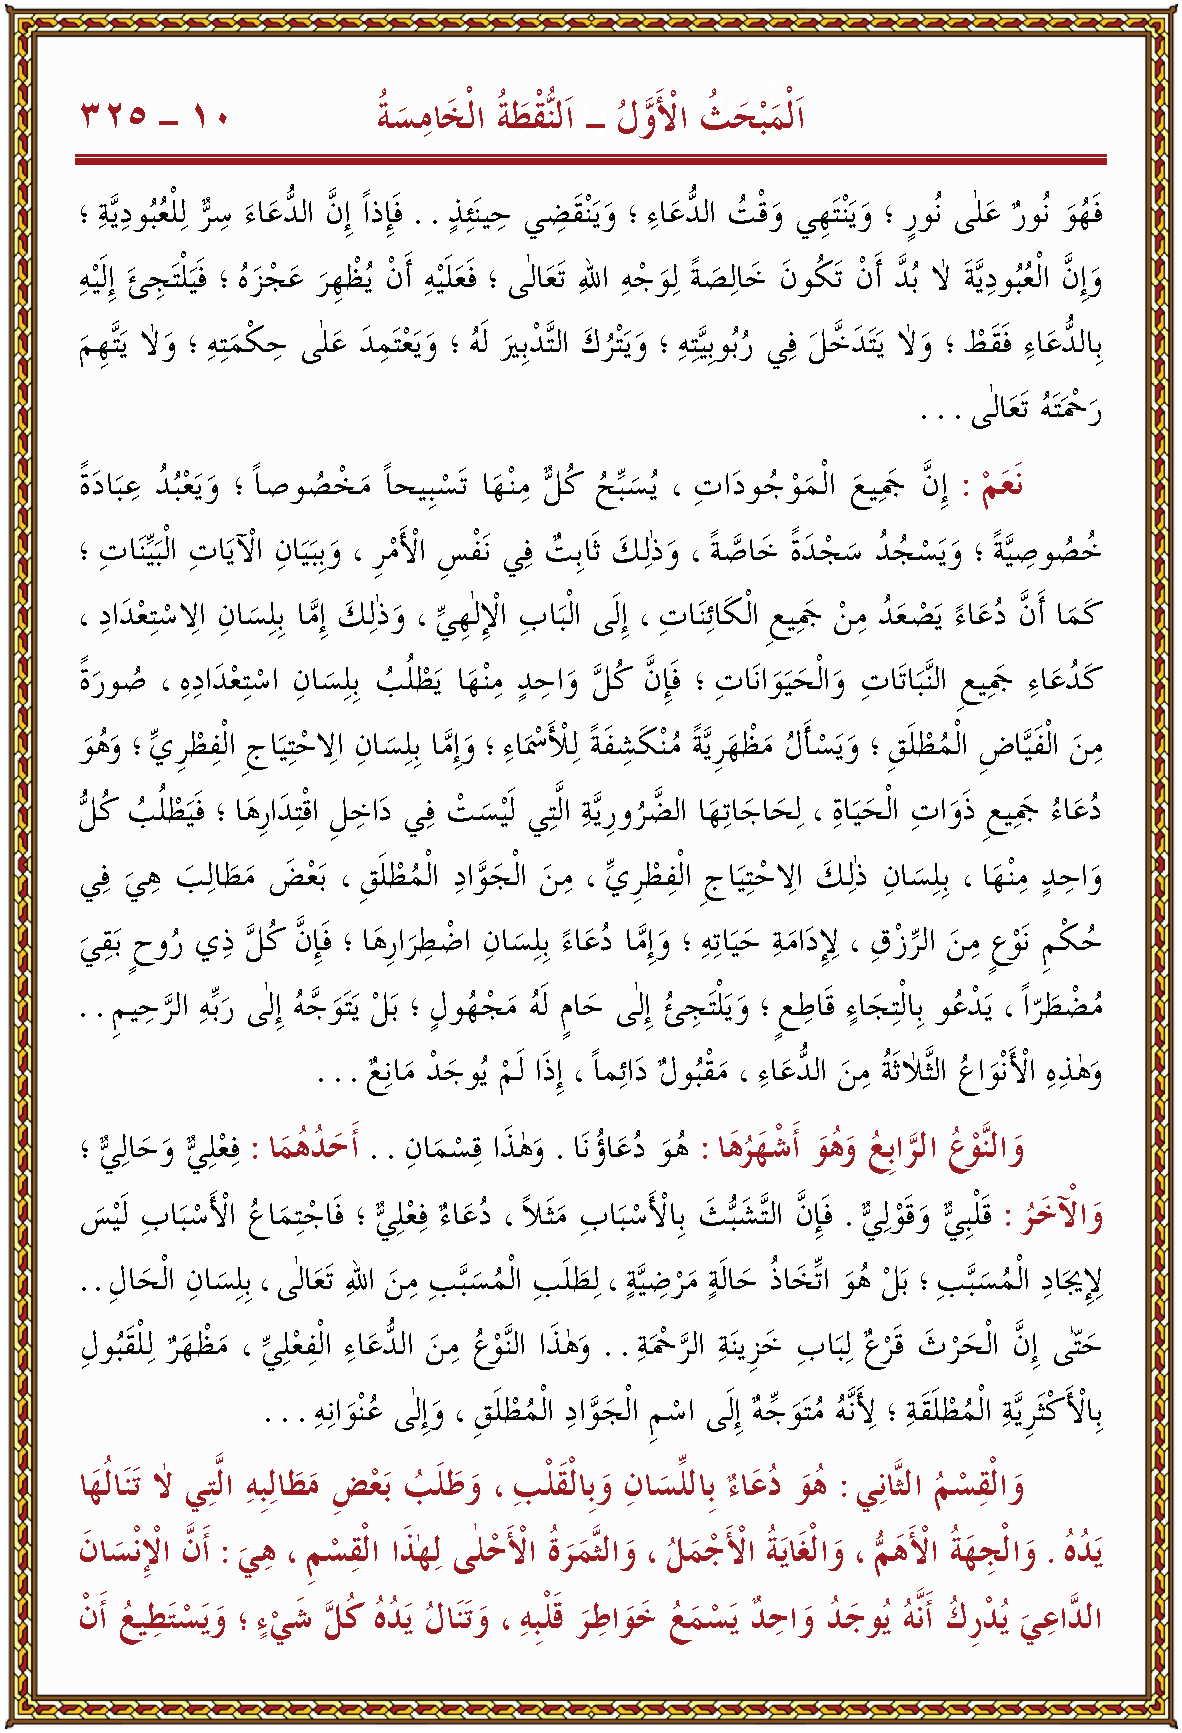 اَلْمَبْحَثُ الْأَوَّلُ ـ اَلنُّقْطَةُ الْخَامِسَةُ ١٠ ـ ٣٢٥
فَهُوَ نُورٌ عَلٰى نُورٍ ؛ وَيَنْتَهِي وَقْتُ الدُّعَاءِ ؛ وَيَنْقَضِي حِينَئِذٍ . . فَإِذاً إِنَّ الدُّعَاءَ سِرٌّ لِلْعُبُودِيَّةِ ؛
وَإِنَّ الْعُبُودِيَّةَ لاٰ بُدَّ أَنْ تَكُونَ خَالِصَةً لِوَجْهِ اللهِ تَعَالٰى ؛ فَعَلَيْهِ أَنْ يُظْهِرَ عَجْزَهُ ؛ فَيَلْتَجِئَ إِلَيْهِ
بِالدُّعَاءِ فَقَطْ ؛ وَلاٰ يَتَدَخَّلَ فِي رُبُوبِيَّتِهِ ؛ وَيَتْرُكَ التَّدْبِيرَ لَهُ ؛ وَيَعْتَمِدَ عَلٰى حِكْمَتِهِ ؛ وَلاٰ يَتَّهِمَ
رَحْمَتَهُ تَعَالٰى . . .
نَعَمْ : إِنَّ جَمِيعَ الْمَوْجُودَاتِ ، يُسَبِّحُ كُلٌّ مِنْهَا تَسْبِيحاً مَخْصُوصاً ؛ وَيَعْبُدُ عِبَادَةً
خُصُوصِيَّةً ؛ وَيَسْجُدُ سَجْدَةً خَاصَّةً ، وَذٰلِكَ ثَابِتٌ فِي نَفْسِ الْأَمْرِ ، وَبِبَيَانِ الْآيَاتِ الْبَيِّنَاتِ ؛
كَمَا أَنَّ دُعَاءً يَصْعَدُ مِنْ جَمِيعِ الْكَائِنَاتِ ، إِلَى الْبَابِ الْإِلٰهِيِّ ، وَذٰلِكَ إِمَّا بِلِسَانِ الاِسْتِعْدَادِ ،
كَدُعَاءِ جَمِيعِ النَّبَاتَاتِ وَالْحَيَوَانَاتِ ؛ فَإِنَّ كُلَّ وَاحِدٍ مِنْهَا يَطْلُبُ بِلِسَانِ اسْتِعْدَادِهِ ، صُورَةً
مِنَ الْفَيَّاضِ الْمُطْلَقِ ؛ وَيَسْأَلُ مَظْهَرِيَّةً مُنْكَشِفَةً لِلْأَسْمَاءِ ؛ وَإِمَّا بِلِسَانِ الاِحْتِيَاجِ الْفِطْرِيِّ ؛ وَهُوَ
دُعَاءُ جَمِيعِ ذَوَاتِ الْحَيَاةِ ، لِحَاجَاتِهَا الضَّرُورِيَّةِ الَّتِي لَيْسَتْ فِي دَاخِلِ اقْتِدَارِهَا ؛ فَيَطْلُبُ كُلُّ
وَاحِدٍ مِنْهَا ، بِلِسَانِ ذٰلِكَ الاِحْتِيَاجِ الْفِطْرِيِّ ، مِنَ الْجَوَّادِ الْمُطْلَقِ ، بَعْضَ مَطَالِبَ هِيَ فِي
حُكْمِ نَوْعٍ مِنَ الرِّزْقِ ، لِإِدَامَةِ حَيَاتِهِ ؛ وَإِمَّا دُعَاءً بِلِسَانِ اضْطِرَارِهَا ؛ فَإِنَّ كُلَّ ذِي رُوحٍ بَقِيَ
مُضْطَرّاً ، يَدْعُو بِالْتِجَاءٍ قَاطِعٍ ؛ وَيَلْتَجِئُ إِلٰى حَامٍ لَهُ مَجْهُولٍ ؛ بَلْ يَتَوَجَّهُ إِلٰى رَبِّهِ الرَّحِيمِ . .
وَهٰذِهِ الْأَنْوَاعُ الثَّلاٰثَةُ مِنَ الدُّعَاءِ ، مَقْبُولٌ دَائِماً ، إِذَا لَمْ يُوجَدْ مَانِعٌ . . .
وَالنَّوْعُ الرَّابِعُ وَهُوَ أَشْهَرُهَا : هُوَ دُعَاؤُنَا . وَهٰذَا قِسْمَانِ . . أَحَدُهُمَا : فِعْلِيٌّ وَحَالِيٌّ ؛
وَالْآخَرُ : قَلْبِيٌّ وَقَوْلِيٌّ . فَإِنَّ التَّشَبُّثَ بِالْأَسْبَابِ مَثَلاً ، دُعَاءٌ فِعْلِيٌّ ؛ فَاجْتِمَاعُ الْأَسْبَابِ لَيْسَ
لِإِيجَادِ الْمُسَبَّبِ ؛ بَلْ هُوَ اتِّخَاذُ حَالَةٍ مَرْضِيَّةٍ ، لِطَلَبِ الْمُسَبَّبِ مِنَ اللهِ تَعَالٰى ، بِلِسَانِ الْحَالِ . .
حَتّٰى إِنَّ الْحَرْثَ قَرْعٌ لِبَابِ خَزِينَةِ الرَّحْمَةِ . . وَهٰذَا النَّوْعُ مِنَ الدُّعَاءِ الْفِعْلِيِّ ، مَظْهَرٌ لِلْقَبُولِ
بِالْأَكْثَرِيَّةِ الْمُطْلَقَةِ ؛ لِأَنَّهُ مُتَوَجِّهٌ إِلَى اسْمِ الْجَوَّادِ الْمُطْلَقِ ، وَإِلٰى عُنْوَانِهِ . . .
وَالْقِسْمُ الثَّانِي : هُوَ دُعَاءٌ بِاللِّسَانِ وَبِالْقَلْبِ ، وَطَلَبُ بَعْضِ مَطَالِبِهِ الَّتِي لاٰ تَنَالُهَا
يَدُهُ . وَالْجِهَةُ الْأَهَمُّ ، وَالْغَايَةُ الْأَجْمَلُ ، وَالثَّمَرَةُ الْأَحْلٰى لِهٰذَا الْقِسْمِ ، هِيَ : أَنَّ الْإِنْسَانَ
الدَّاعِيَ يُدْرِكُ أَنَّهُ يُوجَدُ وَاحِدٌ يَسْمَعُ خَوَاطِرَ قَلْبِهِ ، وَتَنَالُ يَدُهُ كُلَّ شَيْءٍ ؛ وَيَسْتَطِيعُ أَنْ